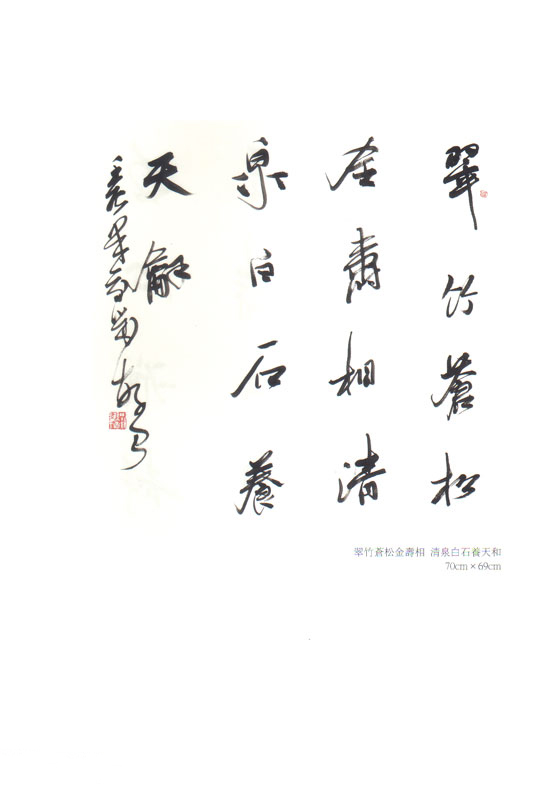 翠竹蒼松
全壽相清
泉白石養
天龢
翠竹蒼松金壽相 清泉白石養天和
70cm × 69cm